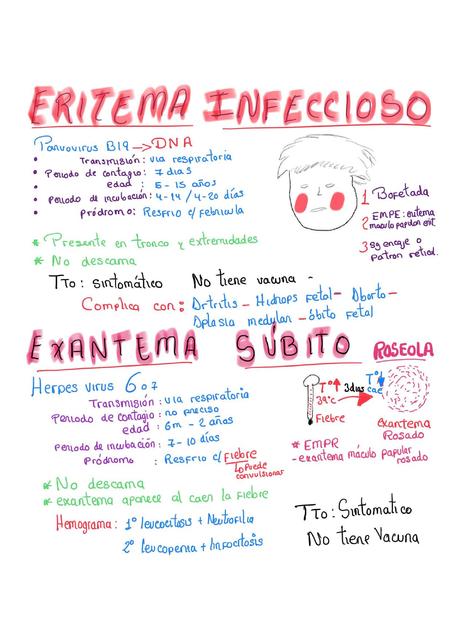 ERITEMA INFECCIOSO
Parvovirus B19 → DNA
• Transmisión: via respiratoria
• Periodo de contagio: 7 dias
• edad: 5 - 15 años
• Periodo de incubación: 4-14 / 4-20 días
• Pródromo: Resfrio c/ febricula
* Presente en tronco y extremidades
* No descama
1 Bofetada
2 EMPE: eritema
maculo papular ext.
3 Sg encaje o
Patron reticl.
Tto: Sintomático No tiene vacuna -
Complica con: Artritis - Hidrops Fetal - Aborto -
Aplasia medular - óbito Fetal
EXANTEMA SÚBITO ROSEOLA
Herpes virus 6 o 7
Transmisión: via respiratoria
Periodo de contagio: no preciso
edad: 6m - 2 años
Periodo de incubación: 7-10 días
Pródromo: Resfrio c/ FIEBRE
↳ Puede
convulsionar
T°↑ 3dias T°↓
39°c cae
Fiebre
Exantema
Rosado
* EMPR
- exantema máculo papular
rosado
* No descama
* exantema aparece al caer la fiebre
Hemograma: 1° leucocitosis + Neutrofilia
2° leucopenia + linfocitosis
Tto: Sintomatico
No tiene Vacuna